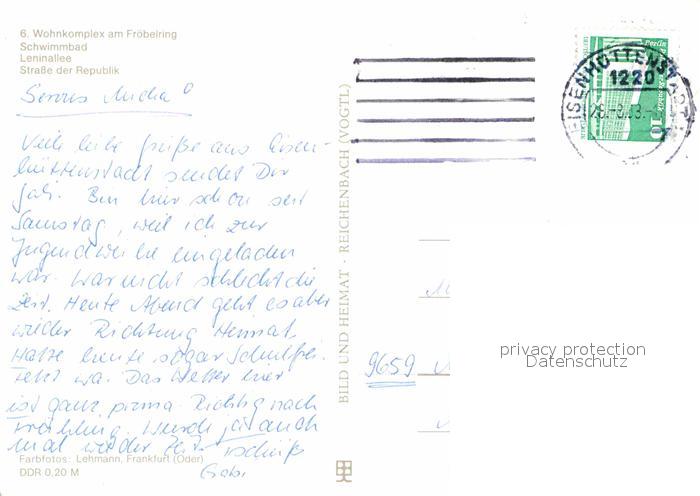 6. Wohnkomplex am Fröbelring
Schwimmbad
Leninallee
Straße der Republik
Servus Micha
Viele liebe Grüße aus Eisen-
hüttenstadt sendet Dir
Gabi. Bin hier schon seit
Samstag, weil ich zur
Jugendweihe eingeladen
war. War nicht schlecht die
Zeit. Heute Abend geht es aber
wieder Richtung Heimat.
Hatte heute sogar Schulfrei.
Fetzt wa. Das Wetter hier
ist ganz prima. Richtig nach
Frühling. Wurde ja auch
mal wieder Zeit. Tschüß
Gabi
Farbfotos: Lehmann, Frankfurt (Oder)
DDR 0,20 M
BILD UND HEIMAT · REICHENBACH (VOGTL)
EISENHÜTTENSTADT
1220
Berlin
10
9659
privacy protection
Datenschutz